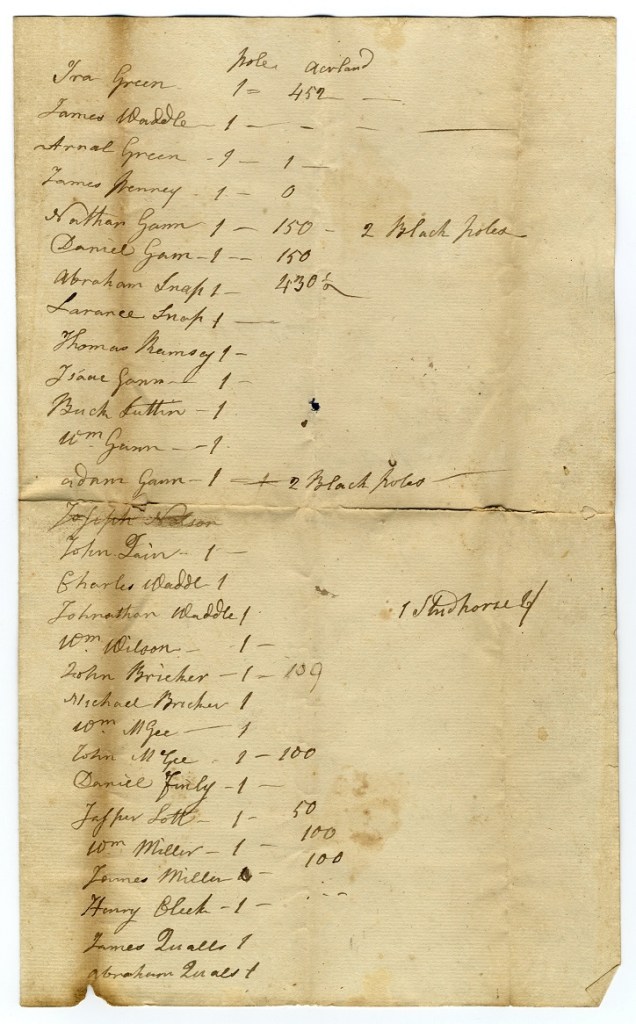 pole acrland
Ira Green 1 = 452 —
James Waddle — 1 — — — —
Arnal Green — 1 — 1 —
James Penney — 1 — 0
Nathan Gann 1 — 150 — 2 Black poles —
Daniel Gann — 1 — 150
Abraham Snap 1 — 430 1/2
Larance Snap 1 —
Thomas Ramsey 1 —
Isaac Gann — 1 —
Buck Luttin — 1
Wm Gann — 1
adam Gann — 1 — + 2 Black poles —
Joseph Nelson
John Pain — 1 —
Charles Waddl 1
Johnathan Waddle 1 1 Studhorse
Wm Wilson — 1 —
John Bricker — 1 — 109
Michael Bricker 1
Wm McGee — 1
John McGee 1 — 100
Daniel Finly — 1 —
Jasper Lott — 1 — 50
Wm Miller — 1 — 100
James Miller 1 — 100
Henry Cleek — 1 — - - -
James Qualls 1
abraham Quals 1